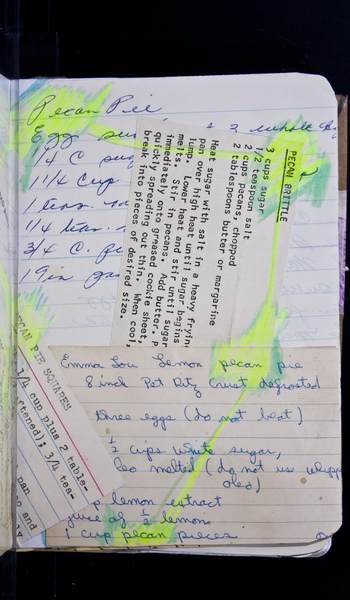 Pecan Pie
Egg
1/4 C.
1 1/4 Cup
1 teas.
1 1/4 teas.
3/4 C.
9 in
PECAN BRITTLE
3 cups sugar
1/2 teaspoon salt
2 cups pecans, chopped
2 tablespoons butter or margarine
Heat sugar with salt in a heavy frying
pan over high heat until sugar begins
lump. Lower heat and stir until sugar
melts. Stir in pecans. Add butter.
immediately onto greased cookie sheet,
quickly spreading out thin. When cool,
break into pieces of desired size.
Emma Lou Lemon pecan pie
8 inch Pet Ritz Crust defrosted
three eggs (do not beat)
1/2 cups white sugar,
oleo melted (do not use whipped
oleo)
lemon extract
juice of 1/2 lemon
1 cup pecan pieces
PECAN PIE SQUARES
1/4 cup plus 2 table-
3/4 tea-
pan
and